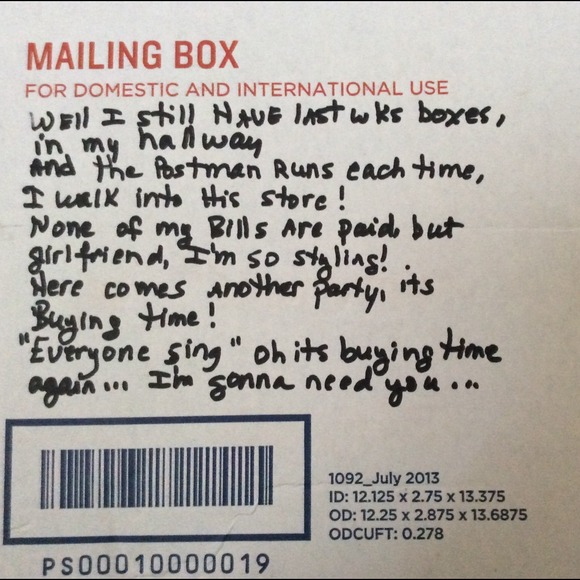 MAILING BOX
FOR DOMESTIC AND INTERNATIONAL USE
WEll I still HAVE lAst wks boxes,
in my hallway
And the Postman Runs each time,
I walk into His store!
None of my Bills Are paid, but
girlfriend, I'm so styling!.
Here comes Another party, its
Buying time!
"Everyone sing" oh its buying time
again... I'm gonna need you...
1092_July 2013
ID: 12.125 x 2.75 x 13.375
OD: 12.25 x 2.875 x 13.6875
ODCUFT: 0.278
PS00010000019